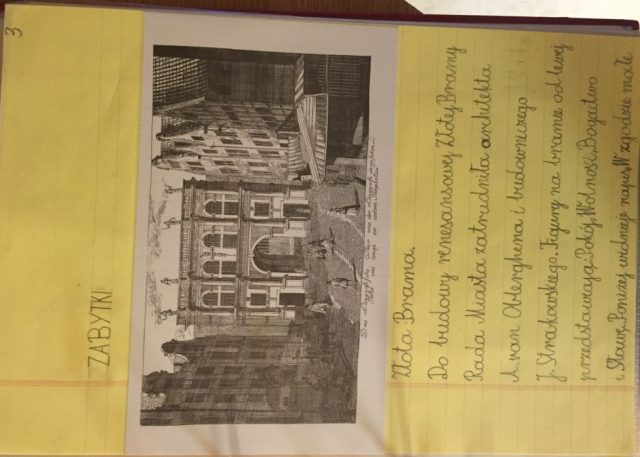 3
ZABYTKI
Złota Brama.
Do budowy renesansowej Złotej Bramy
Rada Miasta zatrudniła architekta
A. van Obberghena i budowniczego
J. Strakowskiego. Figury na bramie od lewej
przedstawiają: Pokój, Wolność, Bogactwo
i Sławę. Poniżej widnieje napis: W zgodzie małe